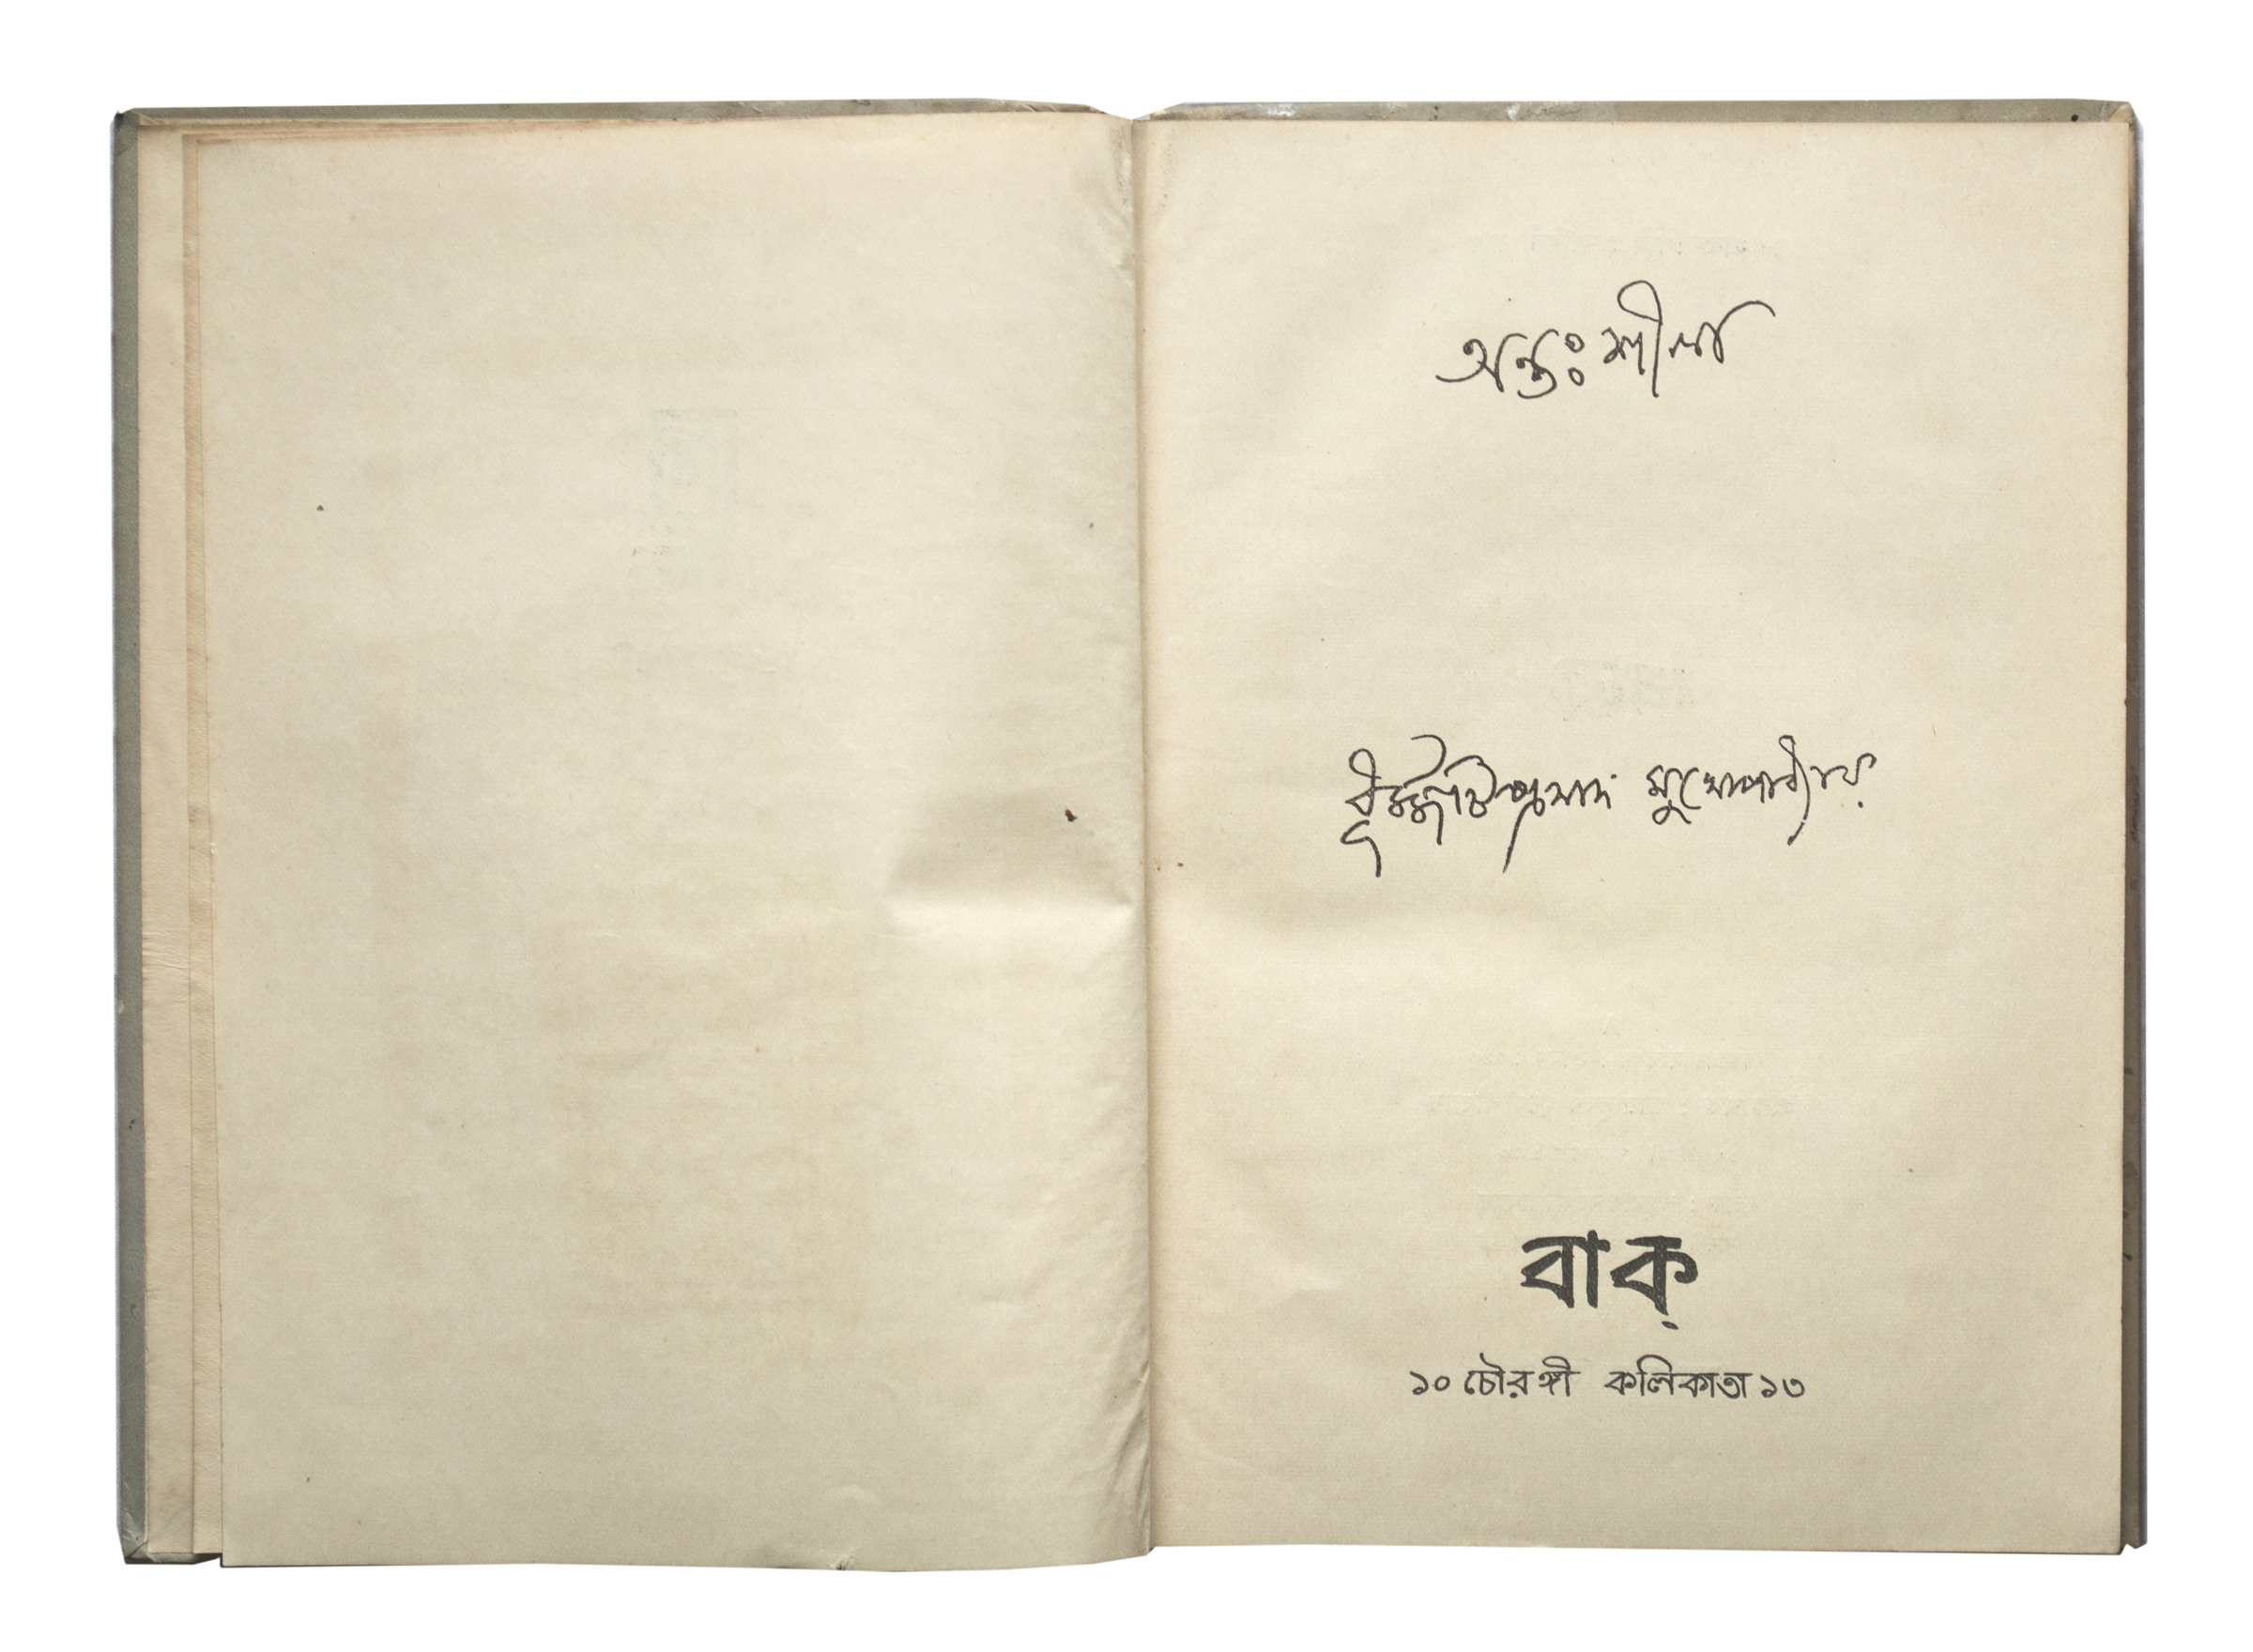 অন্তঃশীলা
ধূর্জ্জটিপ্রসাদ মুখোপাধ্যায়
বাক্
১০ চৌরঙ্গী কলিকাতা ১৩